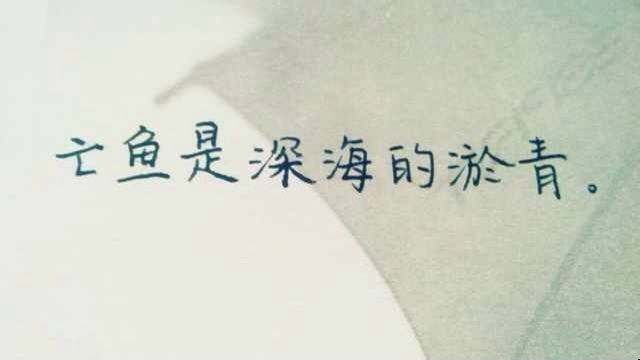 亡鱼是深海的淤青。